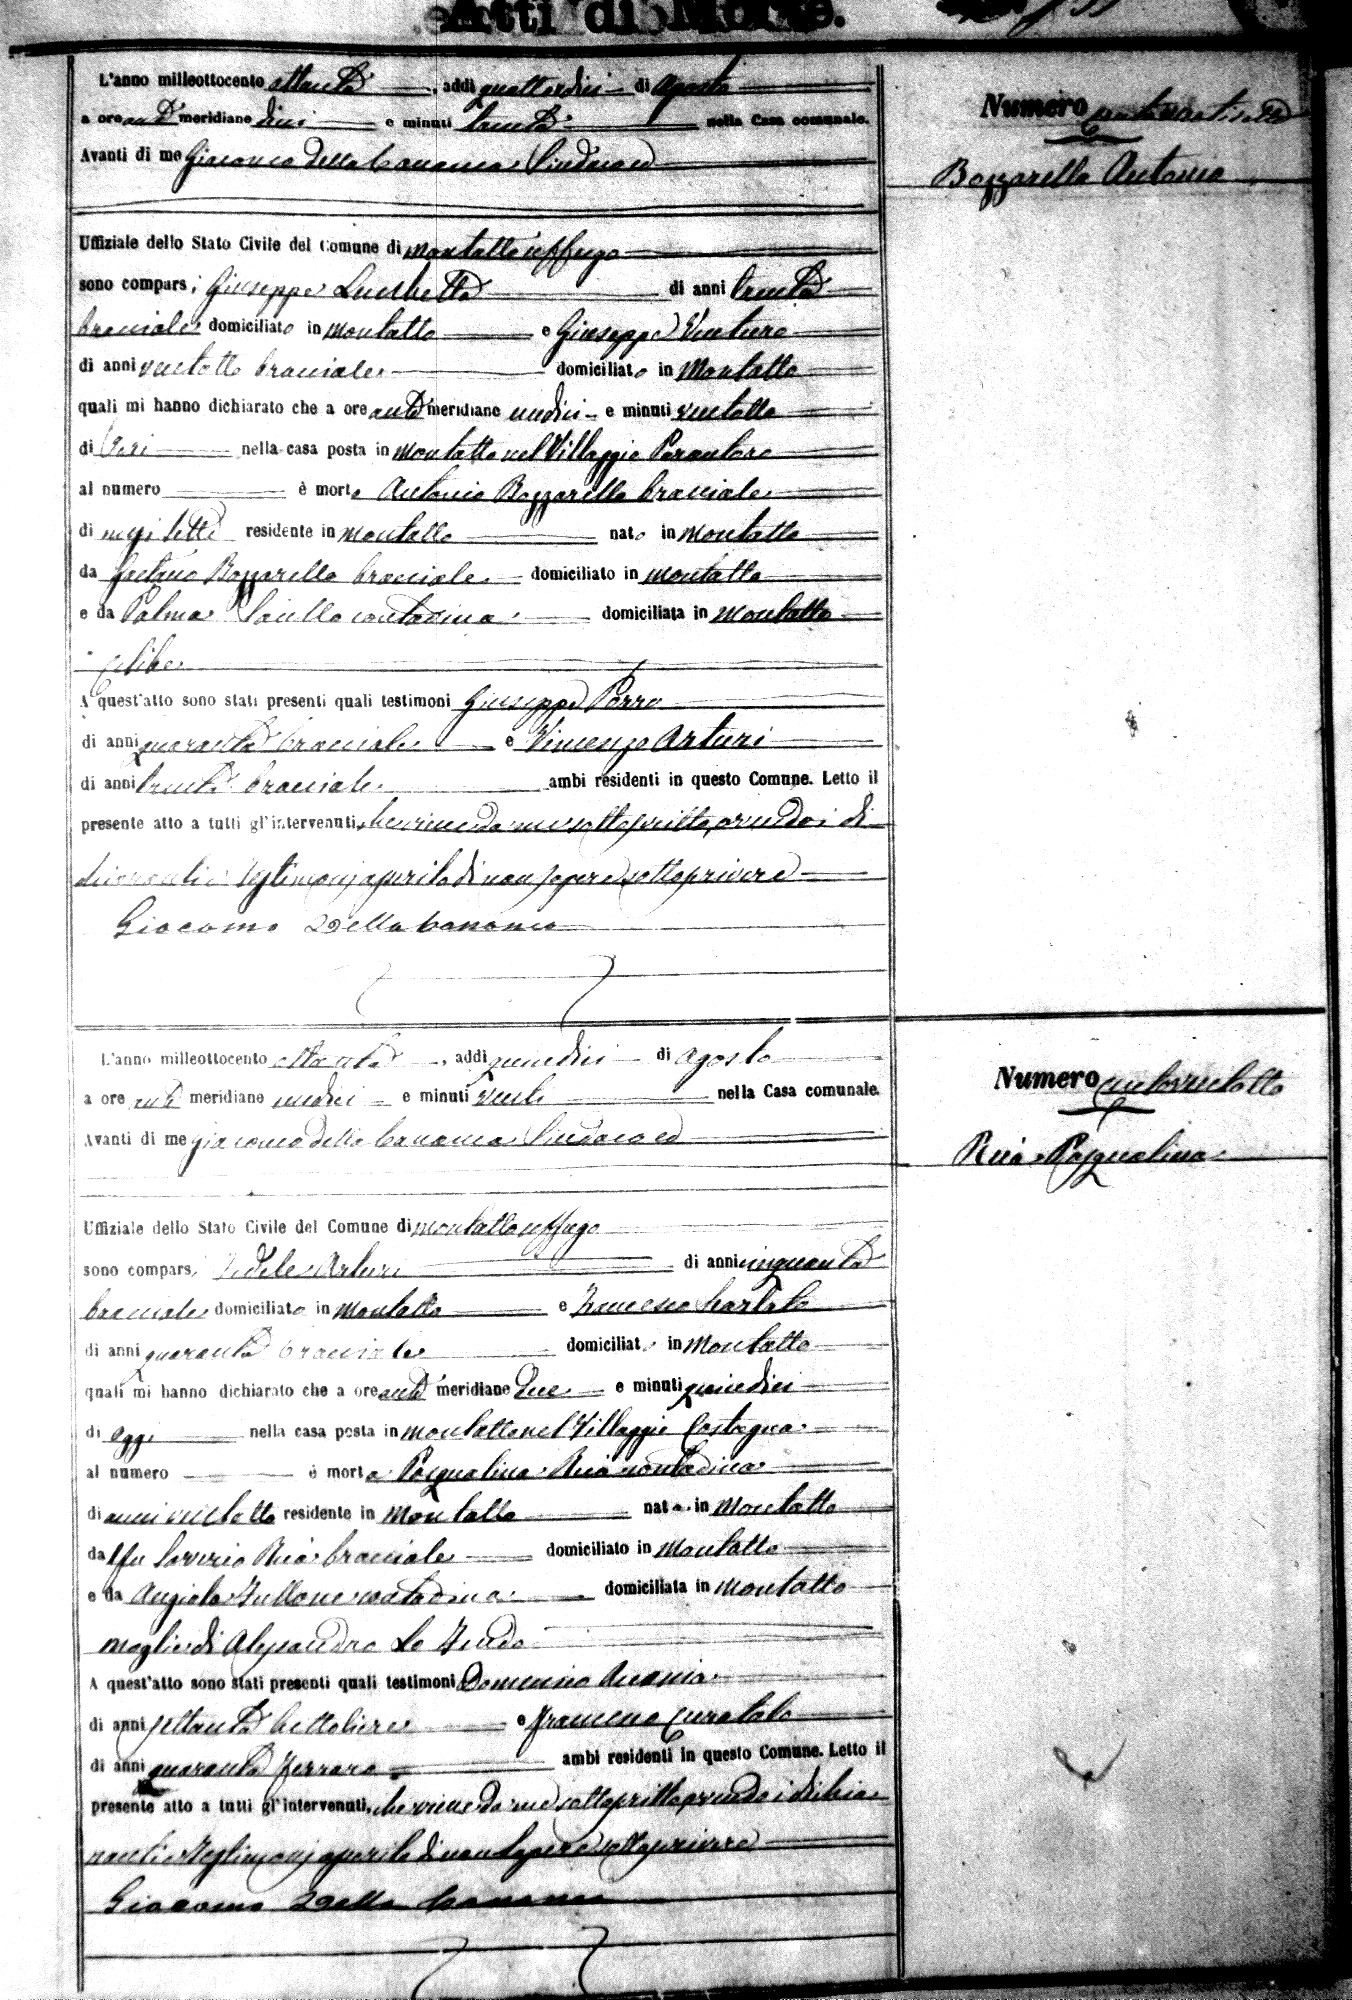 Atti di Morte.
L'anno milleottocento ottanta, addì quattordici di Agosto
a ore anti meridiane dieci e minuti trenta nella Casa comunale.
Avanti di me Giacomo Della Cananea Sindaco ed
Uffiziale dello Stato Civile del Comune di Montalto Uffugo
sono comparsi Giuseppe Luchetta di anni trenta
bracciale domiciliato in Montalto e Giuseppe Venturo
di anni ventotto bracciale domiciliato in Montalto
quali mi hanno dichiarato che a ore anti meridiane undici e minuti ventotto
di Ieri nella casa posta in Montalto nel Villaggio Parantoro
al numero è morto Antonio Bozzarello bracciale
di mesi sette residente in Montalto nato in Montalto
da Gaetano Bozzarello bracciale domiciliato in Montalto
e da Palma contadina domiciliata in Montalto
celibe
A quest'atto sono stati presenti quali testimoni Giuseppe Porro
di anni quaranta bracciale e Vincenzo Arturi
di anni trenta bracciale ambi residenti in questo Comune. Letto il
presente atto a tutti gl'intervenuti, che viene da me sottoscritto avendo i di
chiaranti e testimonj asserito di non sapere sottoscrivere
Giacomo Della Cananea
Numero centoventisette
Bozzarello Antonio
L'anno milleottocento ottanta, addì quindici di Agosto
a ore anti meridiane undici e minuti venti nella Casa comunale.
Avanti di me Giacomo Della Cananea Sindaco ed
Uffiziale dello Stato Civile del Comune di Montalto Uffugo
sono comparsi Fedele Arturi di anni cinquanta
bracciale domiciliato in Montalto e Francesco
di anni quaranta bracciale domiciliato in Montalto
quali mi hanno dichiarato che a ore anti meridiane due e minuti quindici
di oggi nella casa posta in Montalto nel Villaggio Castagna
al numero è morta Pasqualina Ruà contadina
di anni ventotto residente in Montalto nata in Montalto
da fu Saverio Ruà bracciale domiciliato in Montalto
e da Angiola Fullone contadina domiciliata in Montalto
moglie di Alessandro Lo Feudo
A quest'atto sono stati presenti quali testimoni Domenico Anania
di anni settanta bettoliere e Francesco Curatolo
di anni quaranta ferraro ambi residenti in questo Comune. Letto il
presente atto a tutti gl'intervenuti, che viene da me sottoscritto avendo i dichia
ranti e testimonj asserito di non sapere sottoscrivere
Giacomo Della Cananea
Numero centoventotto
Ruà Pasqualina